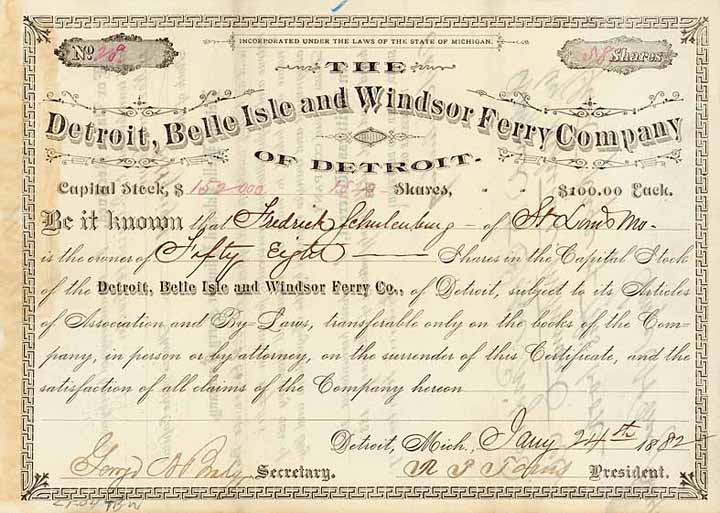 INCORPORATED UNDER THE LAWS OF THE STATE OF MICHIGAN.
No. 58 Shares
THE
Detroit, Belle Isle and Windsor Ferry Company
OF DETROIT.
Capital Stock, $ 152 000 1520 Shares, $100.00 Each.
Be it known that Fredrick Schulenburg of St Louis Mo.
is the owner of Fifty Eight Shares in the Capital Stock
of the Detroit, Belle Isle and Windsor Ferry Co., of Detroit, subject to its Articles
of Association and By-Laws, transferable only on the books of the Com-
pany, in person or by attorney, on the surrender of this Certificate, and the
satisfaction of all claims of the Company hereon
Detroit, Mich., Jany 24th 1882
Secretary. President.